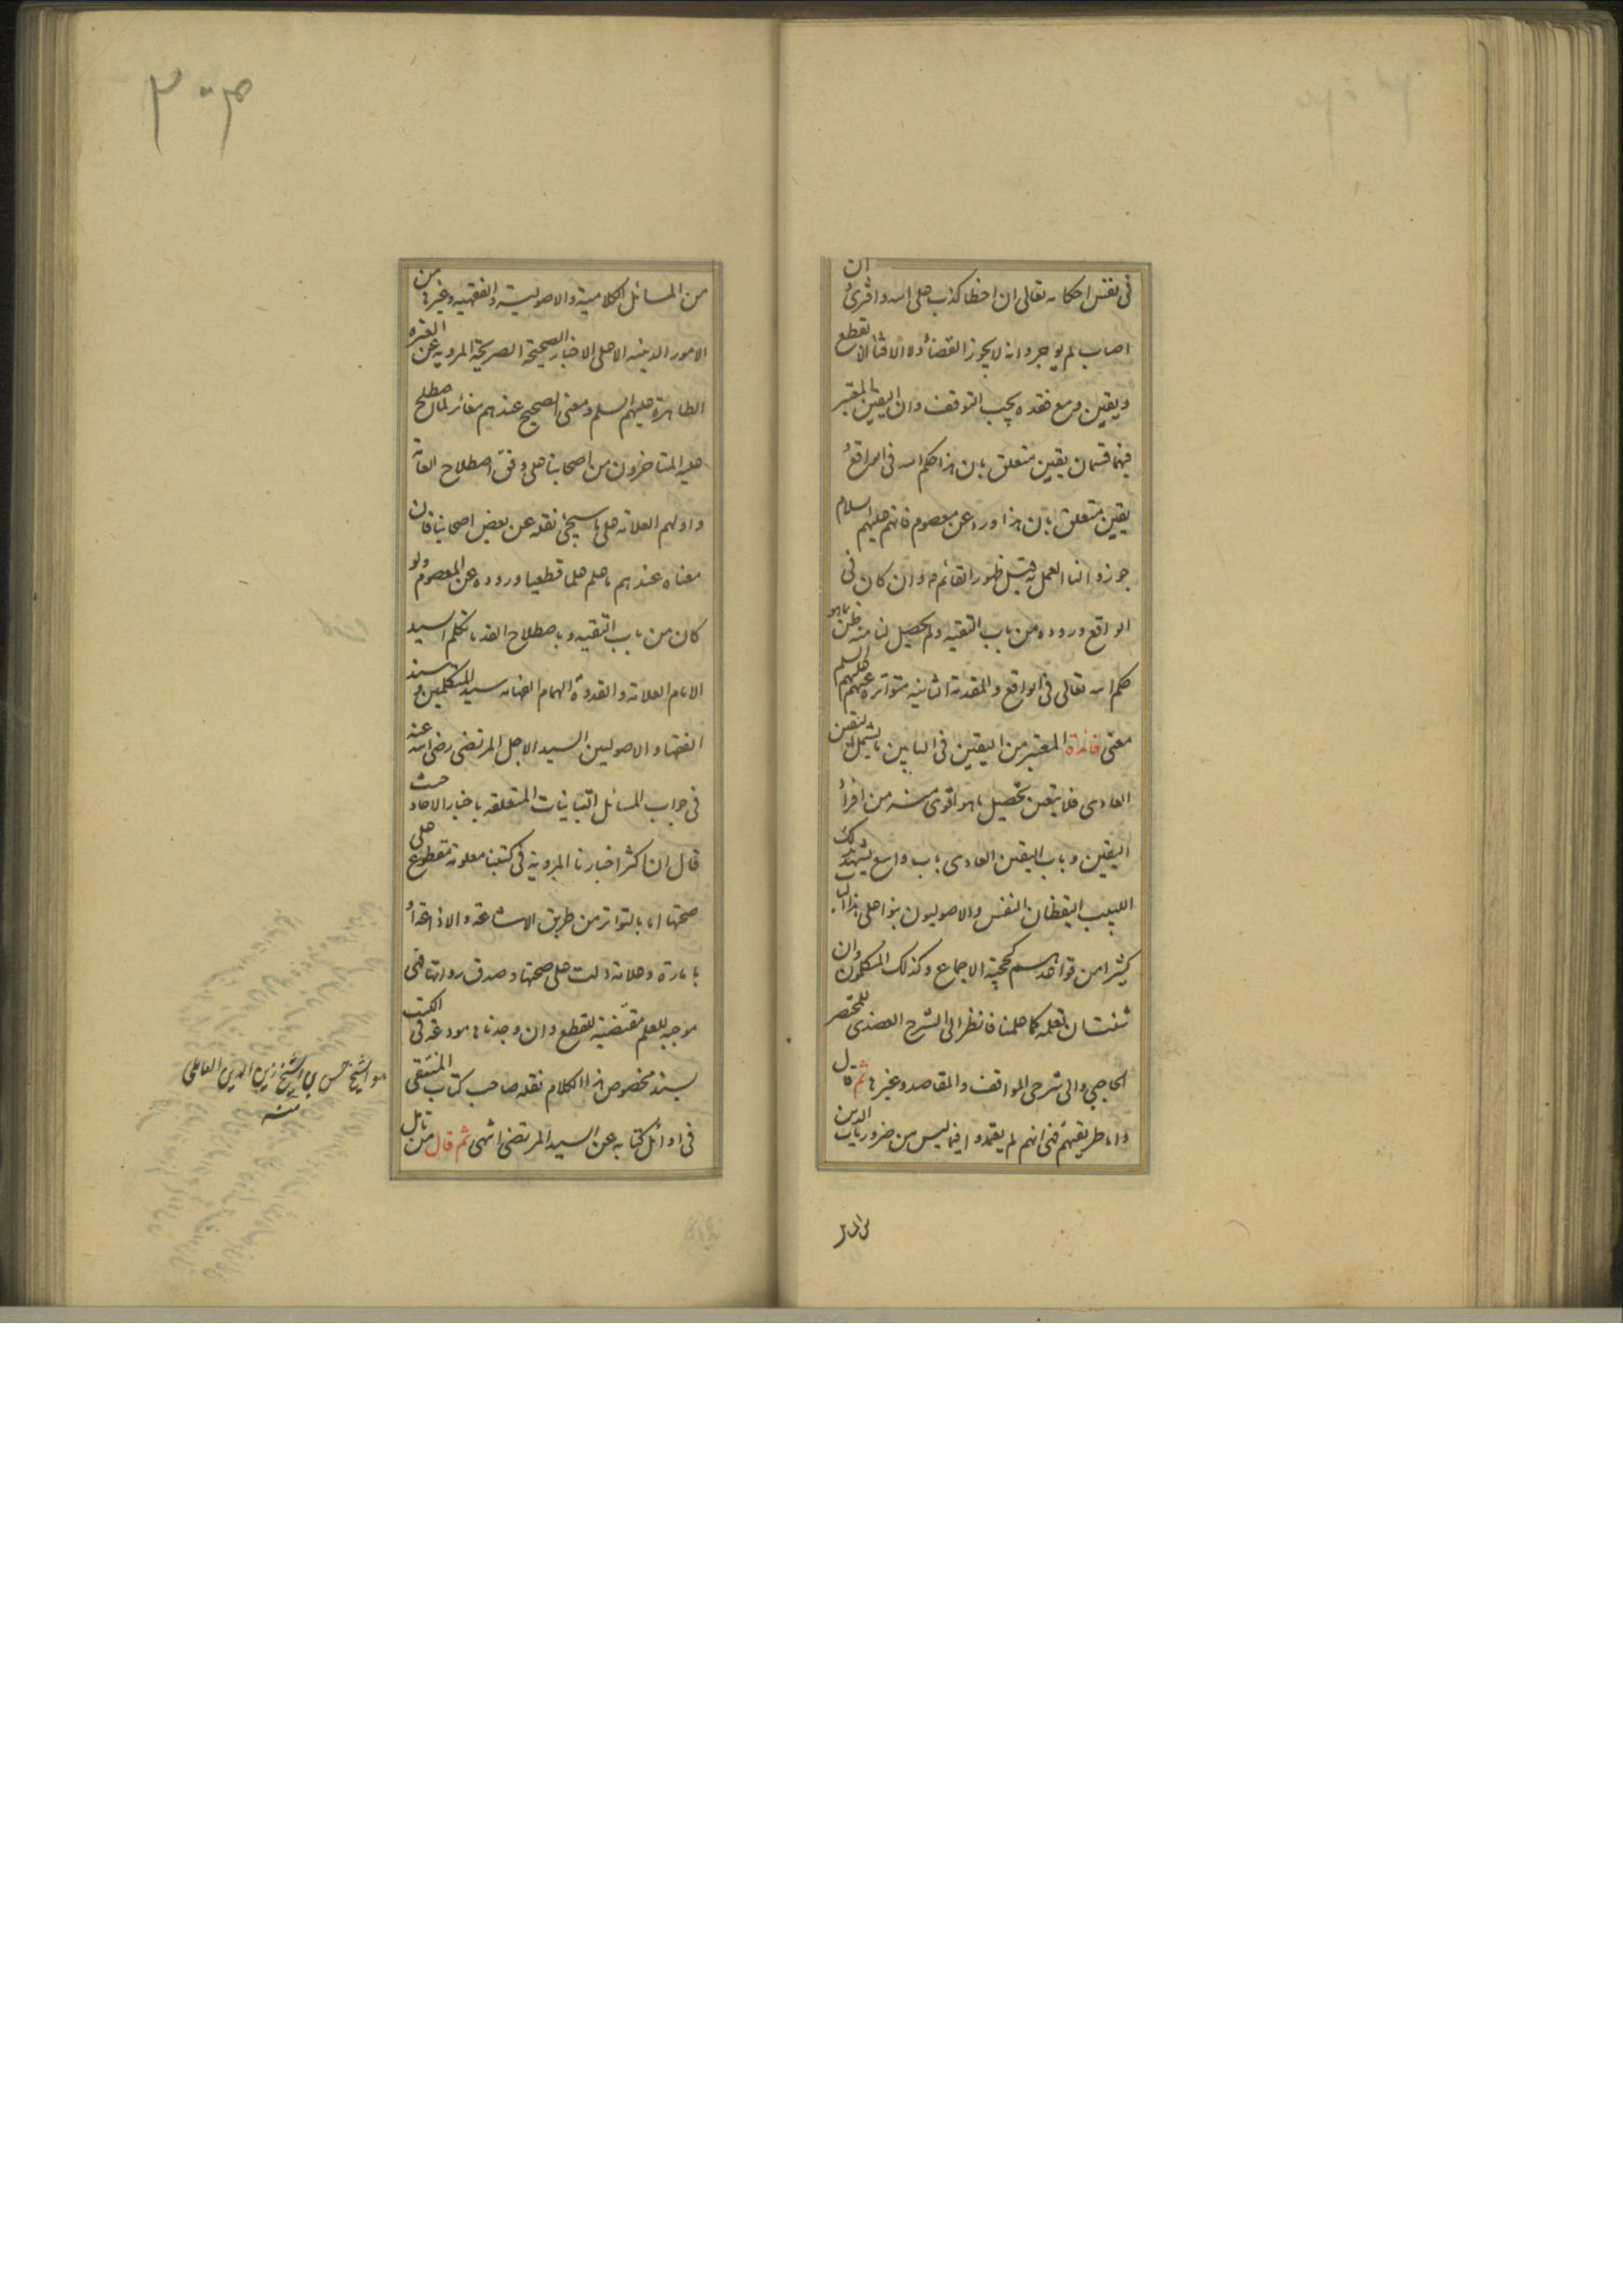 فى نفس احكامه تعالى ان اخطا كذب على الله وافترى وان
اصاب لم يوجر وانه لا يجوز القضاء ولا الافتاء الا بقطع
ويقين ومع فقده يجب التوقف وان اليقين المعتبر
فيهما قسمان يقين متعلق بان هذا حكم الله فى الواقع و
يقين متعلق بان هذا ورد عن معصوم فانهم عليهم السلام
جوزوا لنا العمل به قبل ظهور القائم وان كان فى
الواقع وروده من باب التقيه ولم يحصل لنا منه ظن بما هو
حكم الله تعالى فى الواقع والمقدمة الثانيه متواترة عنهم عليهم السلم
معنى فائدة المعتبر من اليقين فى البابين ما يشمل اليقين
العادى فلا يتعين تحصيل ما هو اقوى منه من افراد
اليقين وباب اليقين العادى باب واسع يشهد بذلك
اللبيب اليقظان النفس والاصوليون بنوا على هذا الباب
كثيرا من قواعدهم كحجية الاجماع وكذلك المتكلمون وان
شئت ان تعلمه كما علمنا فانظر الى الشرح العضدى للمختصر
الحاجبى والى شرحى المواقف والمقاصد وغيرها ثم قال
واما طريقتهم فهى انهم لم يعتمدوا فيما ليس من ضروريات الدين
من المسائل الكلامية والاصولية والفقهيه وغيرها من
الامور الدينيه الا على الاخبار الصحيحة الصريحة المرويه عن العترة
الطاهرة عليهم السلم ومعنى الصحيح عندهم مغائر لما اصطلح
عليه المتاخرون من اصحابنا على وفق اصطلاح العامة
واولهم العلامه على ما سيجئ نقله عن بعض اصحابنا فان
معناه عندهم ما علم علما قطعيا وروده عن المعصوم ولو
كان من باب التقيه وباصطلاح القدماء تكلم السيد
الامام العلامة والقدوة الهمام الفهامه سيد المتكلمين وسند
الفقهاء والاصوليين السيد الاجل المرتضى رضى الله عنه
فى جواب المسائل التبانيات المتعلقه باخبار الاحاد حيث
قال ان اكثر اخبارنا المروية فى كتبنا معلومة مقطوع على
صحتها اما بالتواتر من طريق الاشاعة والاذاعة او
بامارة وعلامة دلت على صحتها وصدق رواتها فهى
موجبه للعلم مقتضية للقطع وان وجدناها مودعة فى الكتب
بسند مخصوص هذا الكلام نقله صاحب كتاب المنتقى
فى اوائل كتابه عن السيد المرتضى انتهى ثم قال من تامل
هو الشيخ حسن بن الشيخ زين الدين العاملى
منه